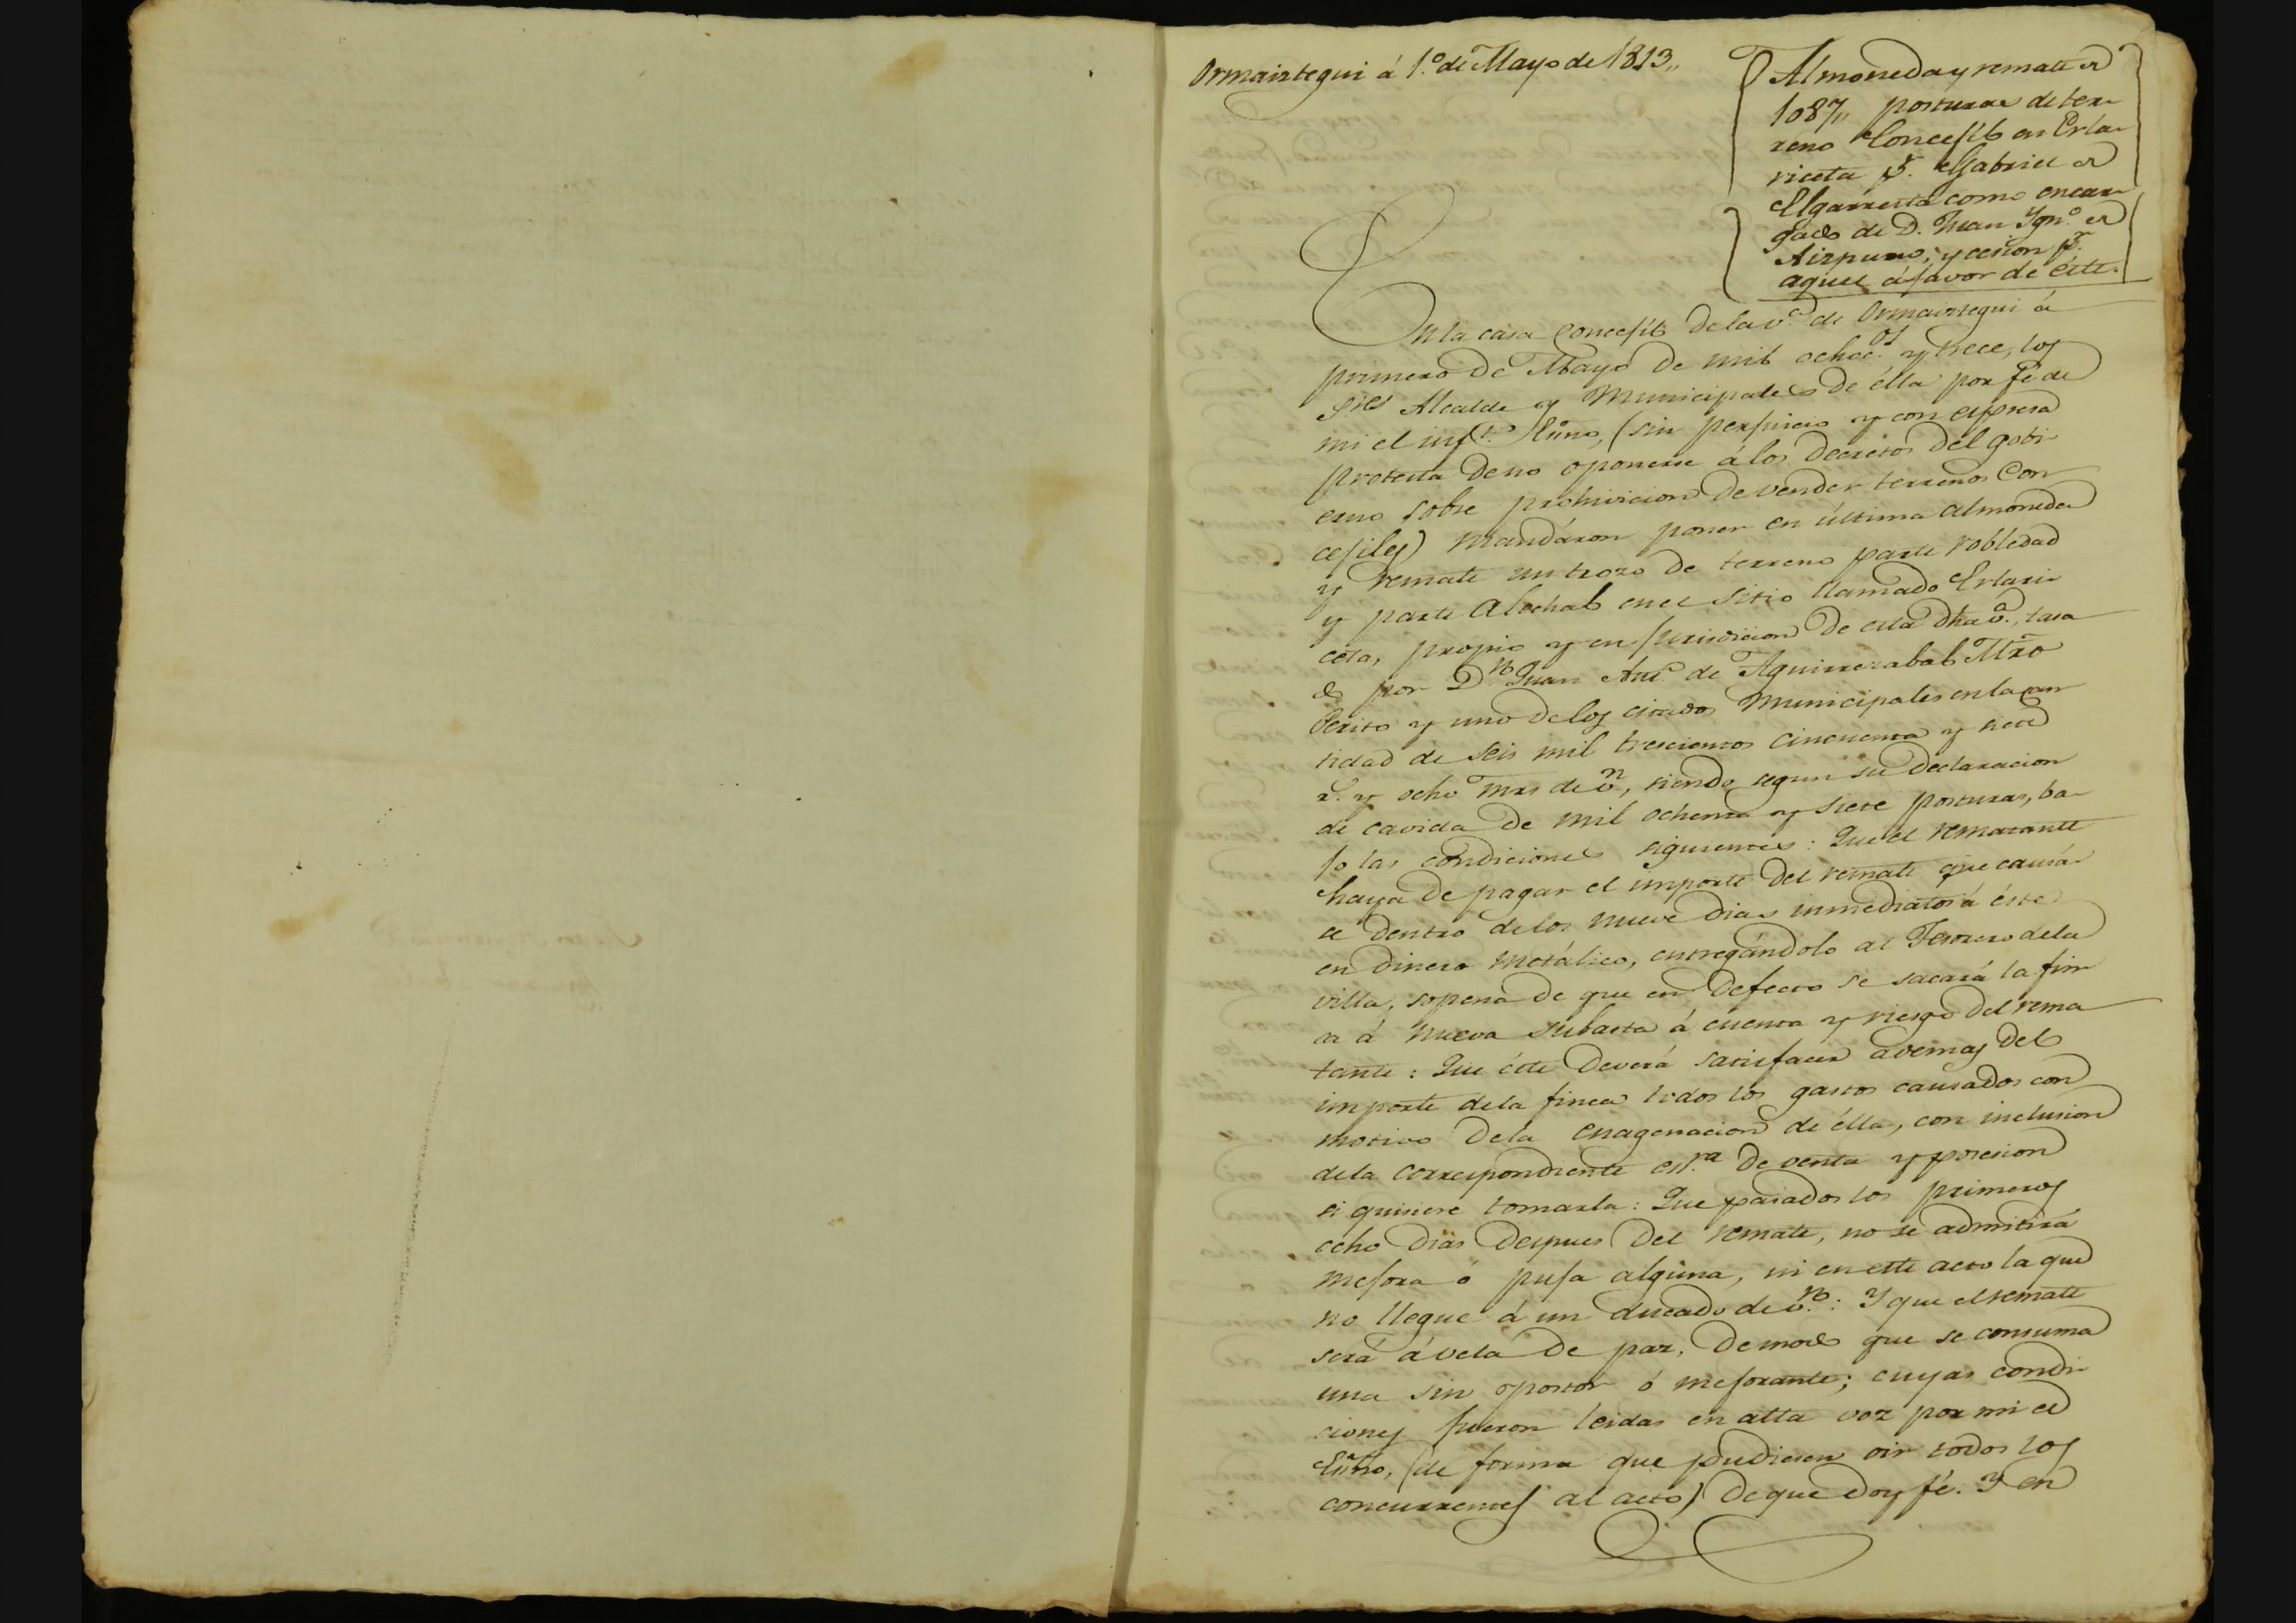 Ormaiztegui á 1.º de Mayo de 1813,,
Almoneda y remate de
1087,, posturas de ter-
reno Concejil en Erla-
riceta p.r Gabriel de
Elgarresta como encar-
gado de D. Juan Ygn.º de
Aizpuru, y cesion p.r
aquel á favor de éste.
En la casa Concejil de la v.ª de Ormaiztegui á
primero de Mayo de mil ochoc.os y trece, los
Sres Alcalde y Municipales de ella por fé de
mi el inf.to Ess.no, (sin perjuicio y con espresa
protesta de no oponerse á los decretos del gobi-
erno sobre prohivicion de vender terrenos Con-
cejiles) mandáron poner en última almoneda
y remate un trozo de terreno parte robledad
y parte Alechal en el sitio llamado Erlari-
ceta, propio y en jurisdicion de esta dha v.ª, tasa
do por D.n Juan Ant.º de Aguirrezabal Mtro
Perito y uno de los citados Municipales en la can-
tidad de seis mil trescientos cincuenta y siete
r.s y ocho mrs de v.n, siendo segun su declaracion
de cavida de mil ochenta y siete posturas, ba-
jo las condiciones siguientes: Que el rematante
haya de pagar el importe del remate que causá-
re dentro de los nueve dias inmediatos á éste
en dinero metálico, entregándolo al Tesorero de la
villa, sopena de que en defecto se sacará la fin-
ca á nueva subasta á cuenta y riesgo del rema
tante: Que éste deverá satisfacer ademas del
importe de la finca todos los gastos causados con
motivo de la enagenacion de élla, con inclusion
de la correspondiente ess.ra de venta y posesion
si quisiere tomarla: Que pasados los primeros
ocho dias despues del remate, no se admitirá
mejora ó puja alguna, ni en este acto la que
no llegue á un ducado de v.n: Y que el remate
será á vela de paz, de modo que se consuma
una sin opositor ó mejorante; cuyas condi-
ciones fueron leidas en alta voz por mi el
Ess.no, (de forma que pudiesen oir todos los
concurrentes al acto) de que doy fé. Y en